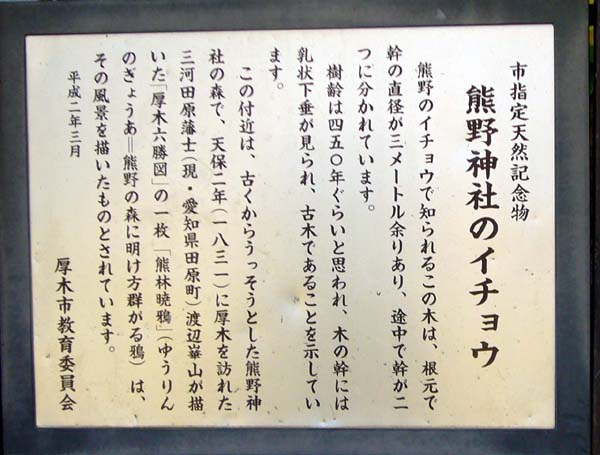 市指定天然記念物
熊野神社のイチョウ
熊野のイチョウで知られるこの木は、根元で
幹の直径が三メートル余りあり、途中で幹が二
つに分かれています。
樹齢は四五〇年ぐらいと思われ、木の幹には
乳状下垂が見られ、古木であることを示してい
ます。
この付近は、古くからうっそうとした熊野神
社の森で、天保二年(一八三一)に厚木を訪れた
三河田原藩士(現・愛知県田原町)渡辺崋山が描
いた「厚木六勝図」の一枚、「熊林暁鴉」(ゆうりん
のぎょうあ=熊野の森に明け方群がる鴉)は、
その風景を描いたものとされています。
平成二年三月
厚木市教育委員会